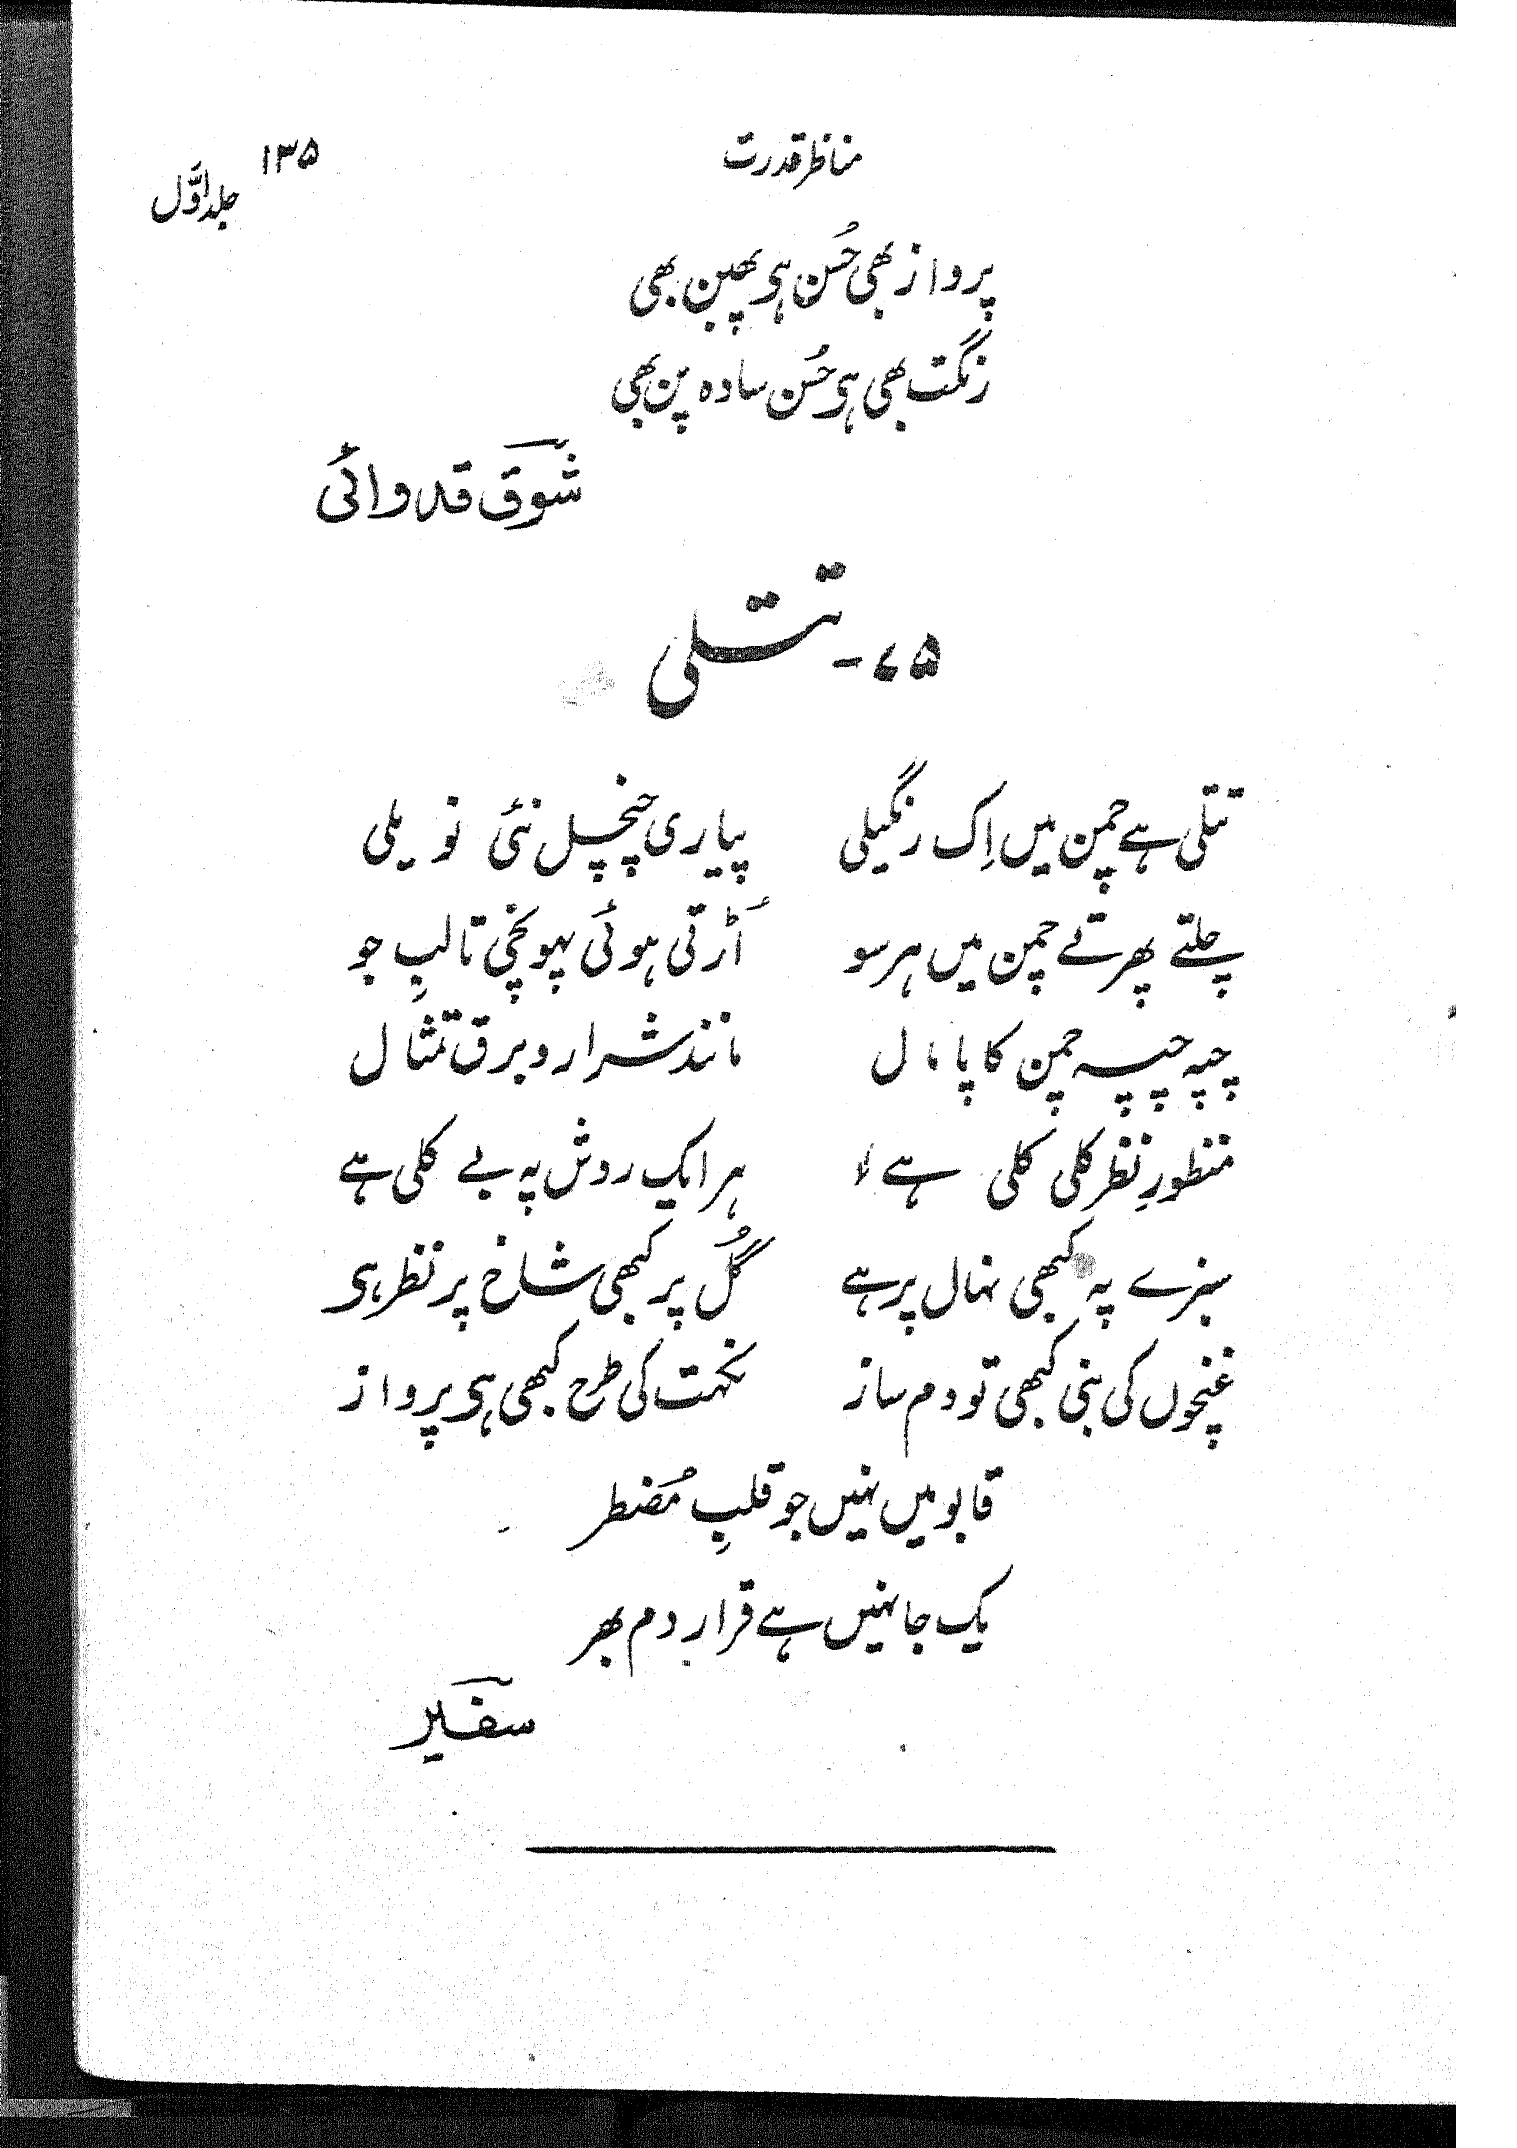 مناظر قدرت
۱۳۵
جلد اوّل
پرواز بھی حُسن ہی پھبن بھی
رنگت بھی ہی حُسن سادہ پن بھی
شوق قدوائی
۷۵ - تتلی
تتلی ہے چمن میں اِک رنگیلی پیاری چنچل نئی نویلی
چلتے پھرتے چمن میں ہر سو اُڑتی ہوئی پہونچی تا لبِ جو
چپہ چپہ چمن کا پامال مانند شرار و برق تمثال
منظورِ نظر کلی کلی ہے ہر ایک روش پہ بے کلی ہے
سبزے پہ کبھی نہال پر ہے گُل پر کبھی شاخ پر نظر ہی
غنچوں کی بنی کبھی تو دم ساز نکہت کی طرح کبھی ہی پرواز
قابو میں نہیں جو قلبِ مُضطر
یک جا نہیں ہے قرار دم بھر
سفیر